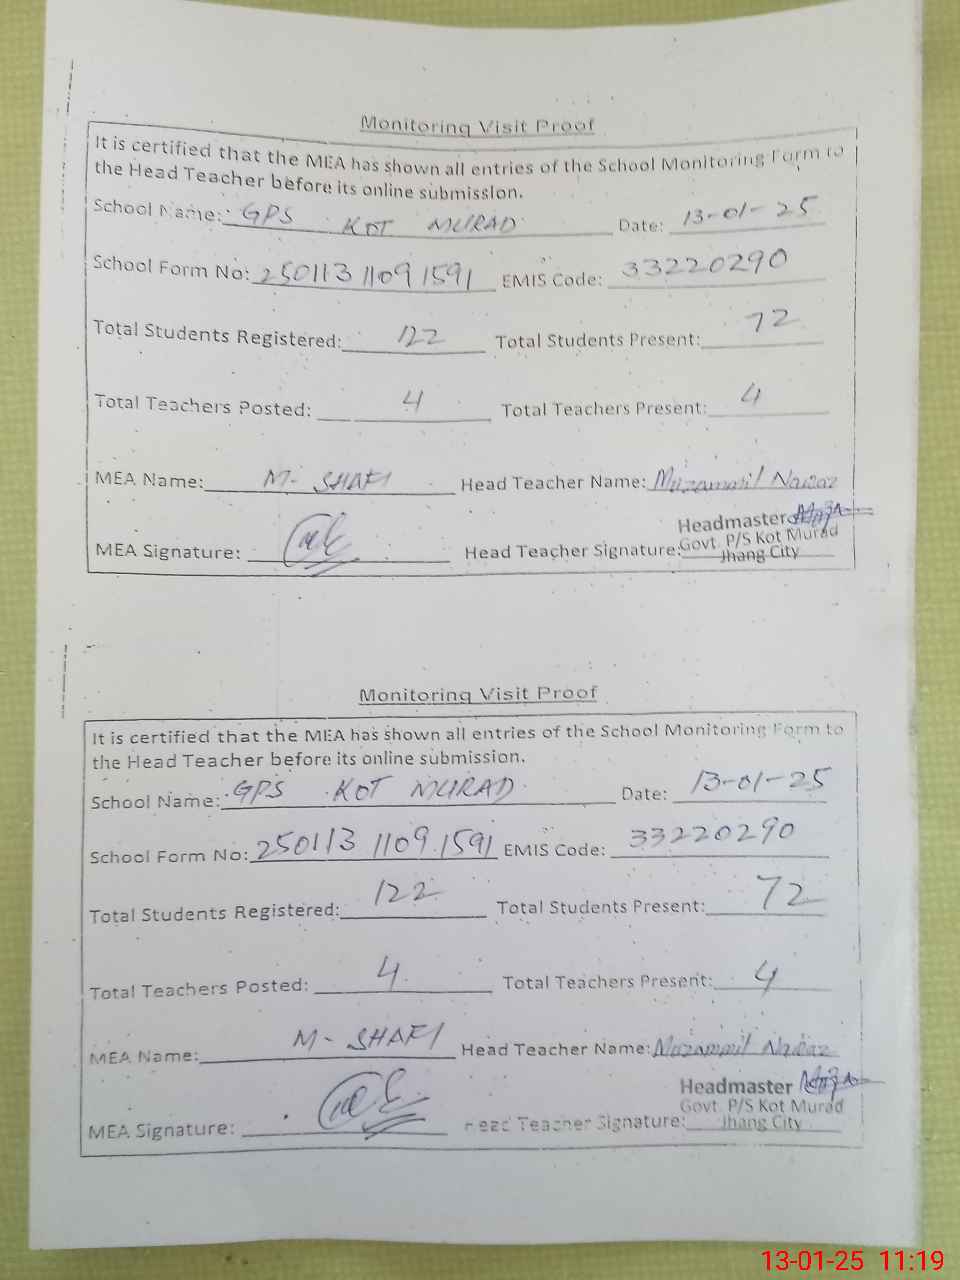 Monitoring Visit Proof
It is certified that the MEA has shown all entries of the School Monitoring Form to
the Head Teacher before its online submission.
School Name: GPS KOT MURAD Date: 13-01-25
School Form No: 250113 1109 1591 EMIS Code: 33220290
Total Students Registered: 122 Total Students Present: 72
Total Teachers Posted: 4 Total Teachers Present: 4
MEA Name: M- SHAFI Head Teacher Name: Muzammil Nawaz
MEA Signature: Head Teacher Signature:
Headmaster
Govt. P/S Kot Murad
Jhang City
Monitoring Visit Proof
It is certified that the MEA has shown all entries of the School Monitoring Form to
the Head Teacher before its online submission.
School Name: GPS KOT MURAD Date: 13-01-25
School Form No: 250113 1109 1591 EMIS Code: 33220290
Total Students Registered: 122 Total Students Present: 72
Total Teachers Posted: 4 Total Teachers Present: 4
MEA Name: M- SHAFI Head Teacher Name: Muzammil Nawaz
MEA Signature: Head Teacher Signature:
Headmaster
Govt. P/S Kot Murad
Jhang City
13-01-25 11:19